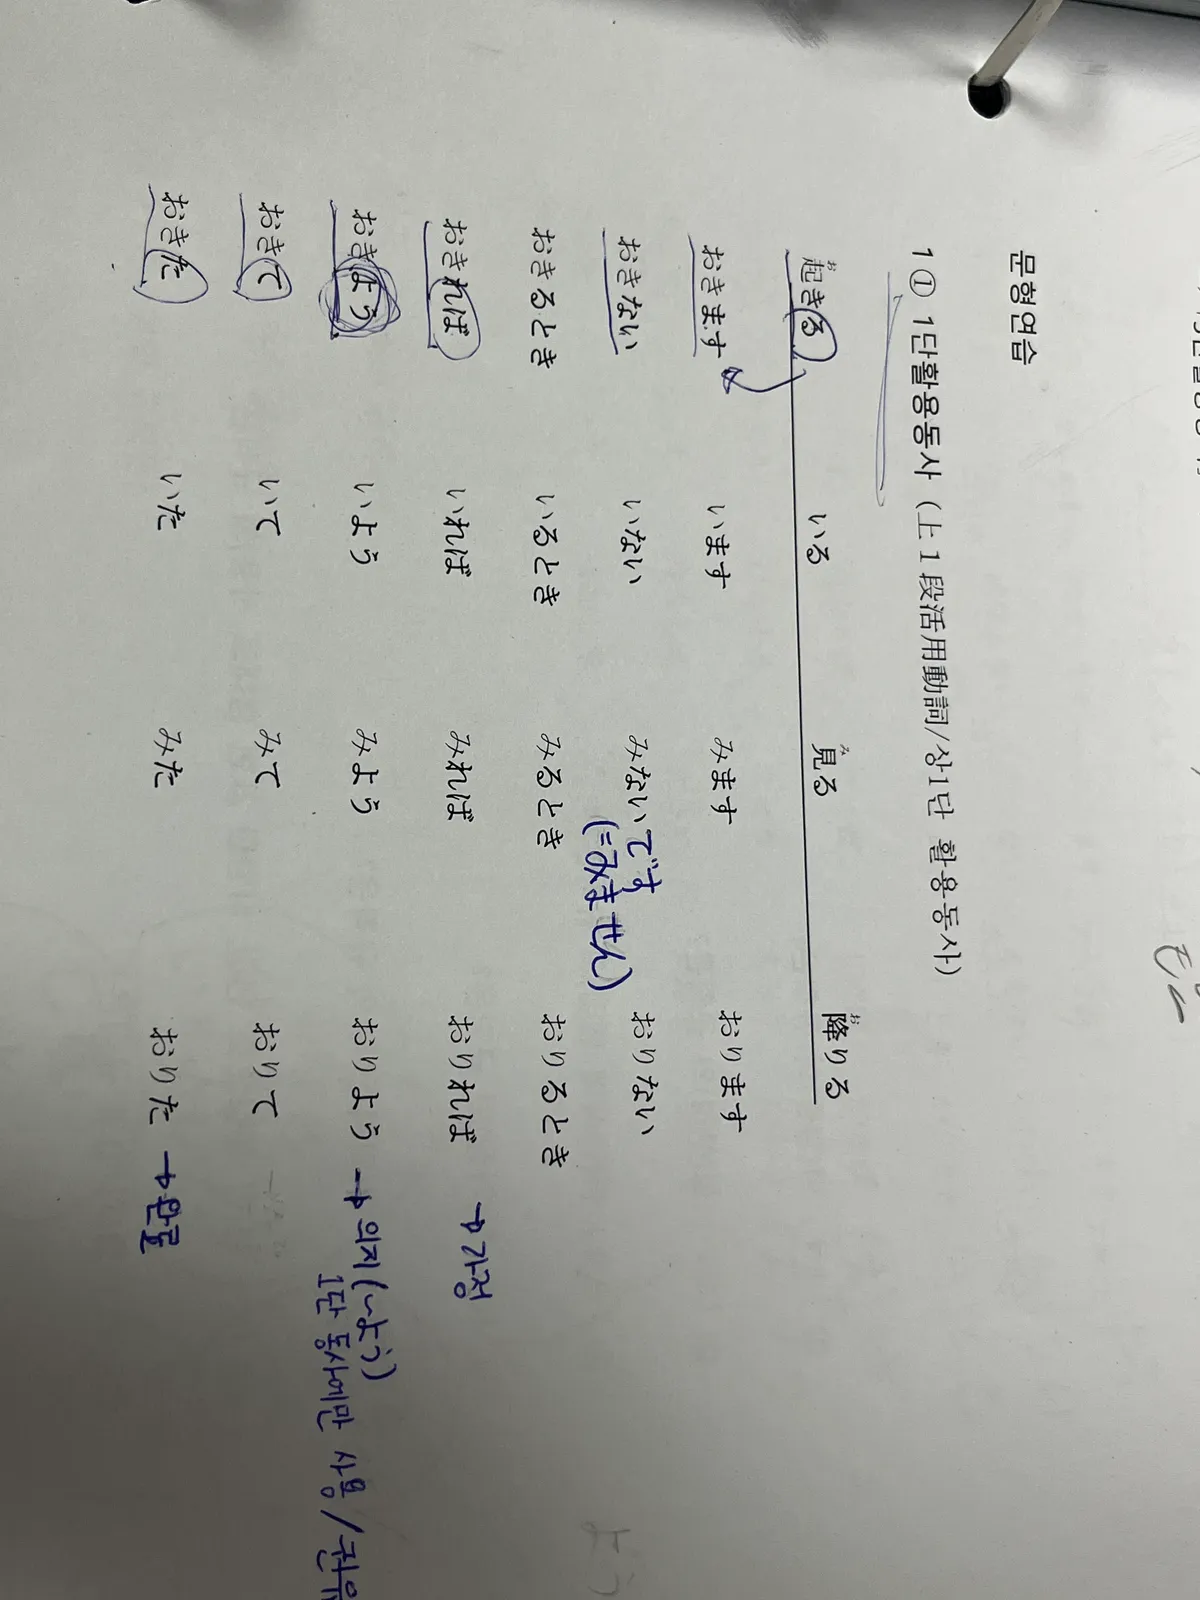 문형연습
1① 1단활용동사 (上1段活用動詞/상1단 활용동사)
起きる いる 見る 降りる
おきます います みます おります
おきない いない みないです おりない
(=みません)
おきるとき いるとき みるとき おりるとき
おきれば いれば みれば おりれば → 가정
おきよう いよう みよう おりよう → 의지(~よう)
1단 동사에만 사용 / 권유
おきて いて みて おりて
おきた いた みた おりた → 완료